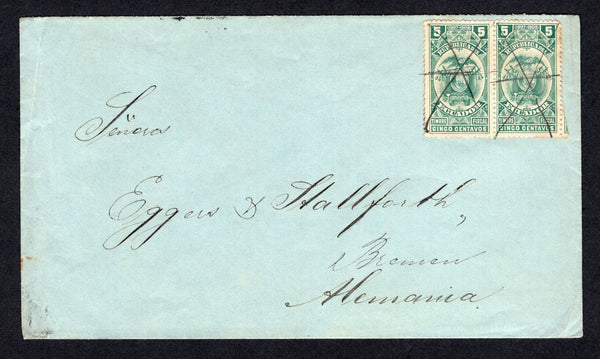 5 5 5 5
REPUBLICA DEL REPUBLICA DEL
ECUADOR ECUADOR
TIMBRE FISCAL TIMBRE FISCAL
CINCO CENTAVOS CINCO CENTAVOS
Señores
Eggers & Stallforth,
Bremen
Alemania.